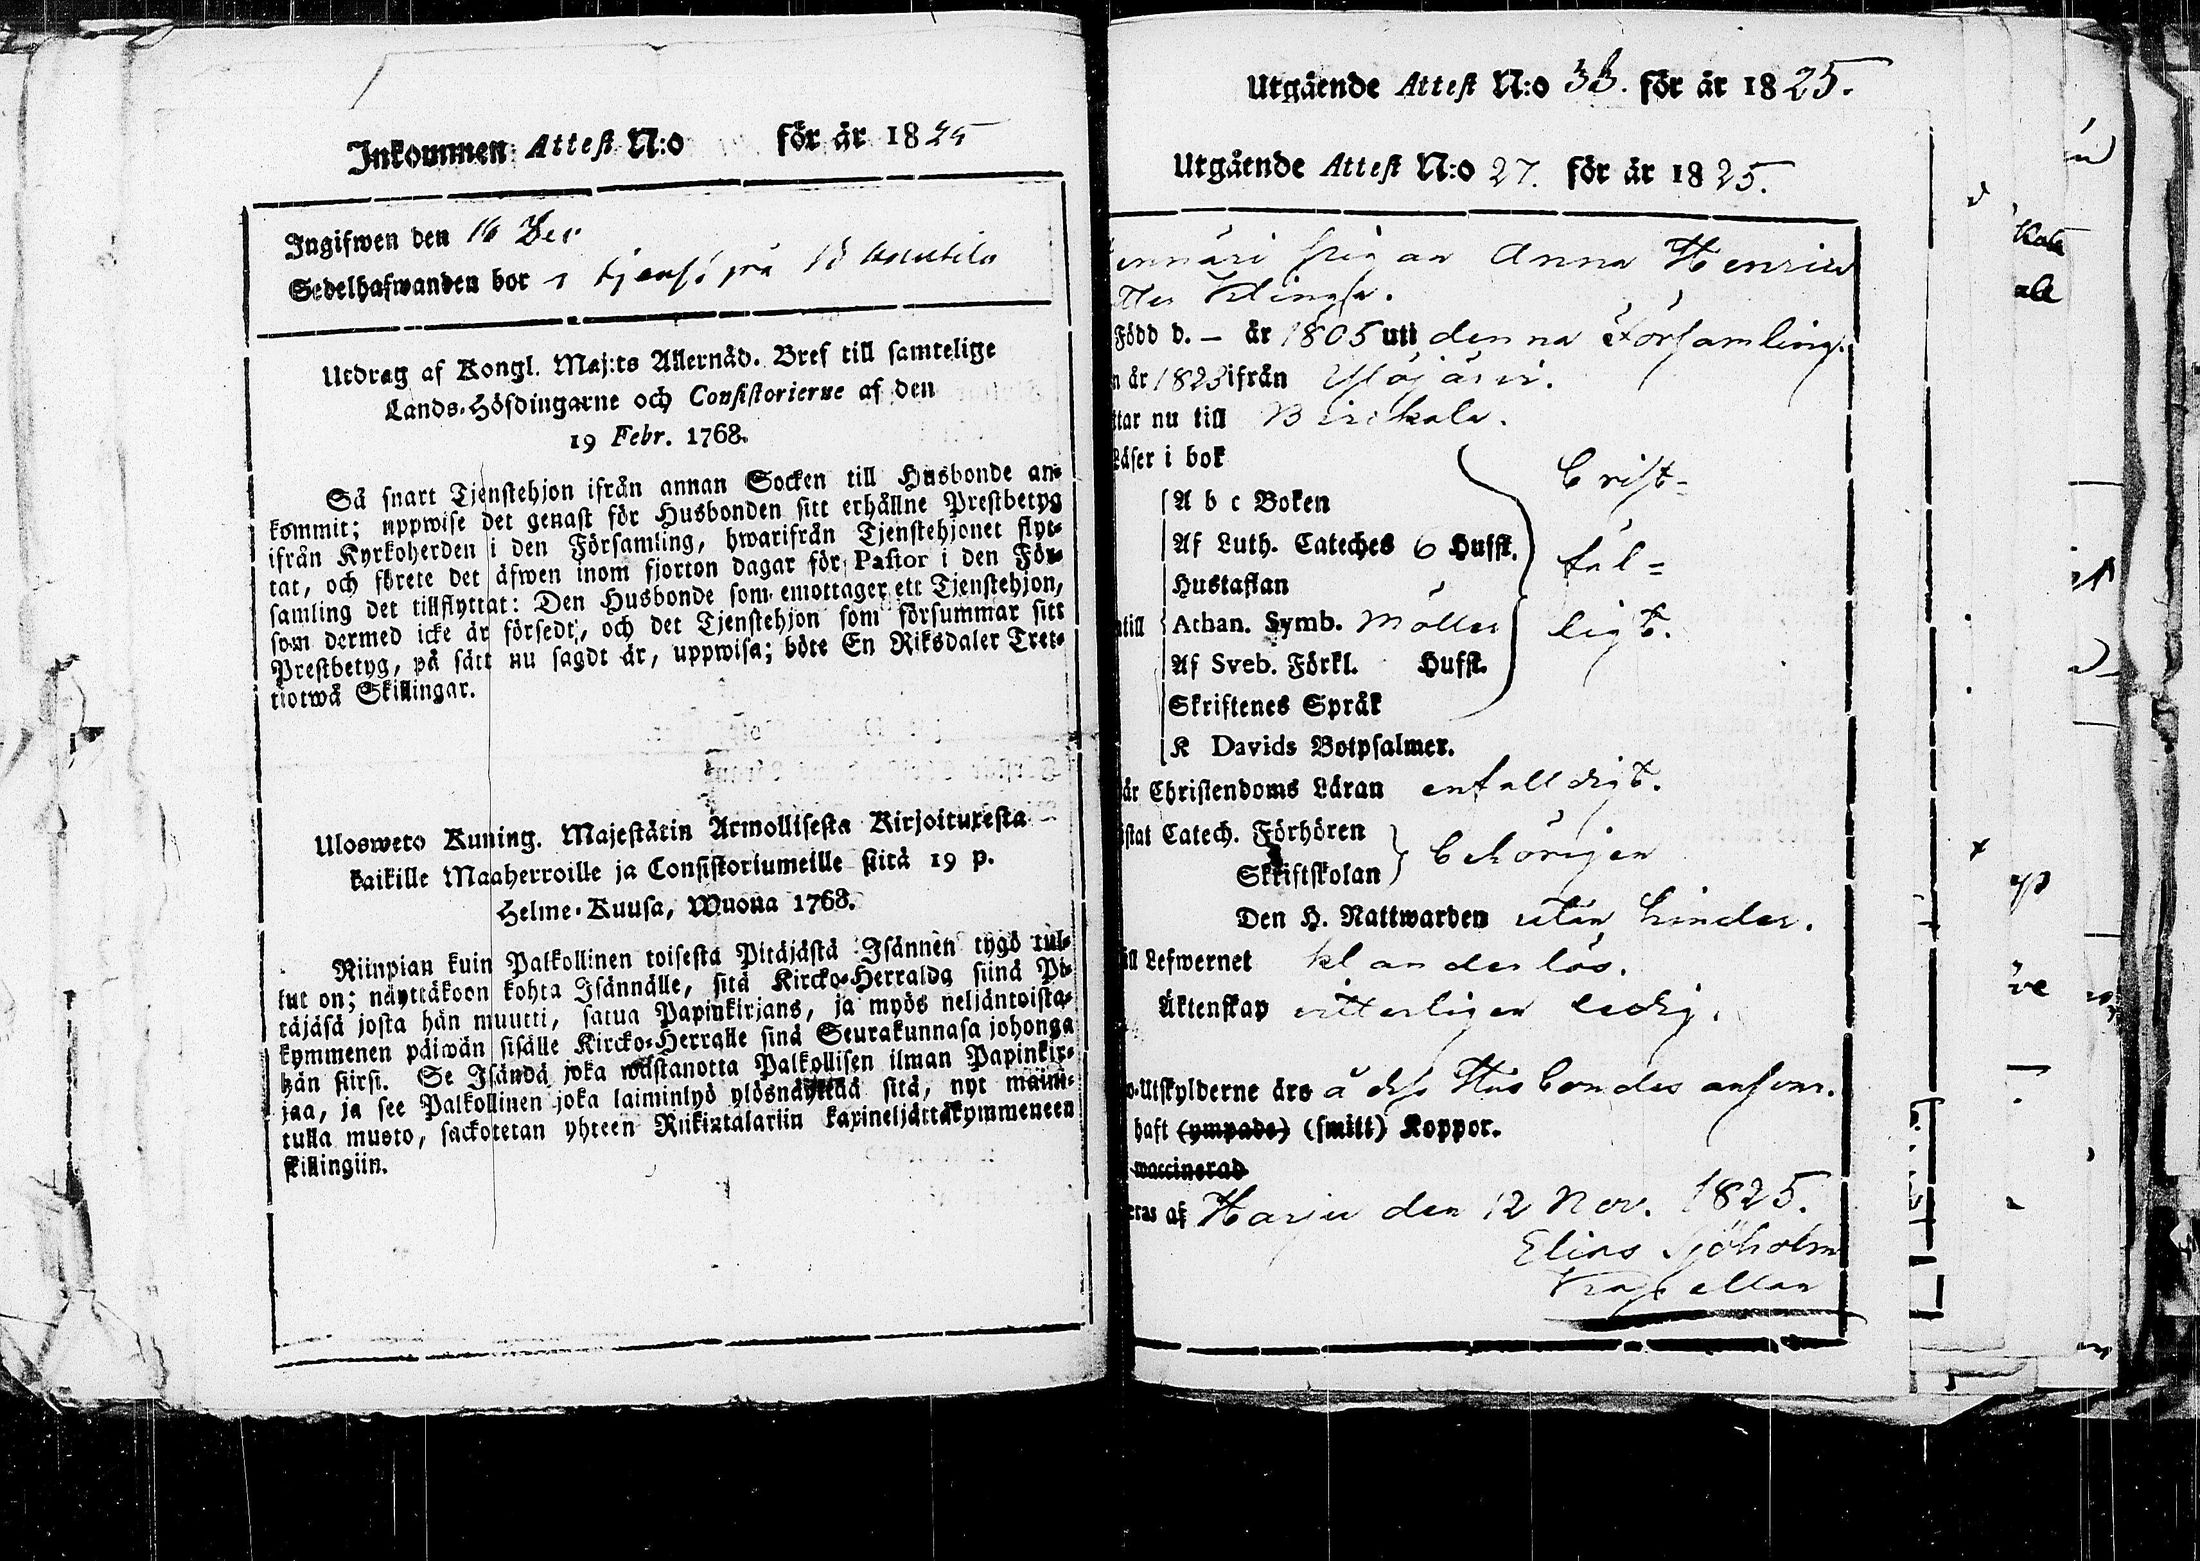 Inkommen Attest N:o för år 1825
Ingifwen den 16 Dec
Sedelhafwanden bor i tjenst på
Utdrag af Kongl. Maj:ts Allernåd. Bref till samtelige
Lands-Höfdingarne och Consistorierne af den
19 Febr. 1768.
Så snart Tjenstehjon ifrån annan Socken till Husbonde an-
kommit; uppwise det genast för Husbonden sitt erhållne Prestbetyg
ifrån Kyrkoherden i den Församling, hwarifrån Tjenstehjonet flyt-
tat, och förete det äfwen inom fjorton dagar för Pastor i den För-
samling det tillflyttat: Den Husbonde som emottager ett Tjenstehjon,
som dermed icke är försedt, och det Tjenstehjon som försummar sitt
Prestbetyg, på sätt nu sagdt är, uppwisa; böte En Riksdaler Tret-
tiotwå Skillingar.
Ulosweto Kuning. Majestätin Armollisesta Kirjoituresta
kaikille Maaherroille ja Consistoriumeille siitä 19 p.
Helme-Kuusa, Wuona 1768.
Niinpian kuin Palkollinen toisesta Pitäjästä Isännen tygö tul-
lut on; näyttäkoon kohta Isännälle, sitä Kircko-Herralda siinä Pi-
täjäsä josta hän muutti, satua Papinkirjans, ja myös neljäntoista-
kymmenen päiwän sisälle Kircko-Herralle sinä Seurakunnasa johonga
hän siirsi. Se Isändä joka wastanotta Palkollisen ilman Papinkir-
jaa, ja see Palkollinen joka laiminlyö ylösnäyttää sitä, nyt maini-
tulla muoto, sackotetan yhteen Riikintalariin kaxineljättäkymmeneen
skillingiin.
Utgående Attest N:o 33. för år 1825.
Utgående Attest N:o 27. för år 1825.
Pigan Anna Henrics
Född d. – år 1805 uti denna Församling.
år 1823 ifrån Ylöjärvi.
tar nu till Birckala.
Läser i bok
A b c Boken
Christ-
Af Luth. Cateches 6 Hufst.
fäl-
Hustaflan
Athan. Symb. Möller
ligt.
Af Sveb. Förkl. Hufst.
Skriftenes Språk
K Davids Botpsalmer.
är Christendoms Läran enfalldigt.
stat Catech. Förhören
behörigen
Skriftskolan
Den H. Nattwarden utan hinder.
ill Lefwernet klanderlös.
Äktenskap vitterligen ledig.
o-Utskylderne äro å dess Husbondes answar.
haft (ympade) (smitt) Koppor.
waccinerad
eras af Harju den 12 Nov. 1825.
Elias Sjöholm
Kapellan